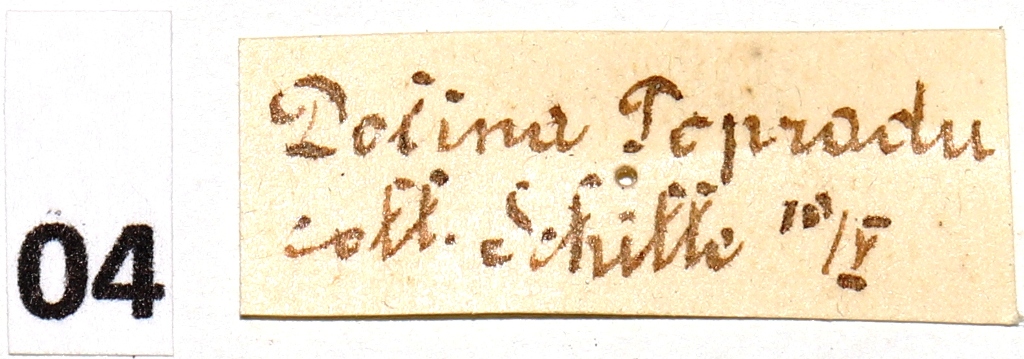 04
Dolina Popradu
coll. Schille 10/V